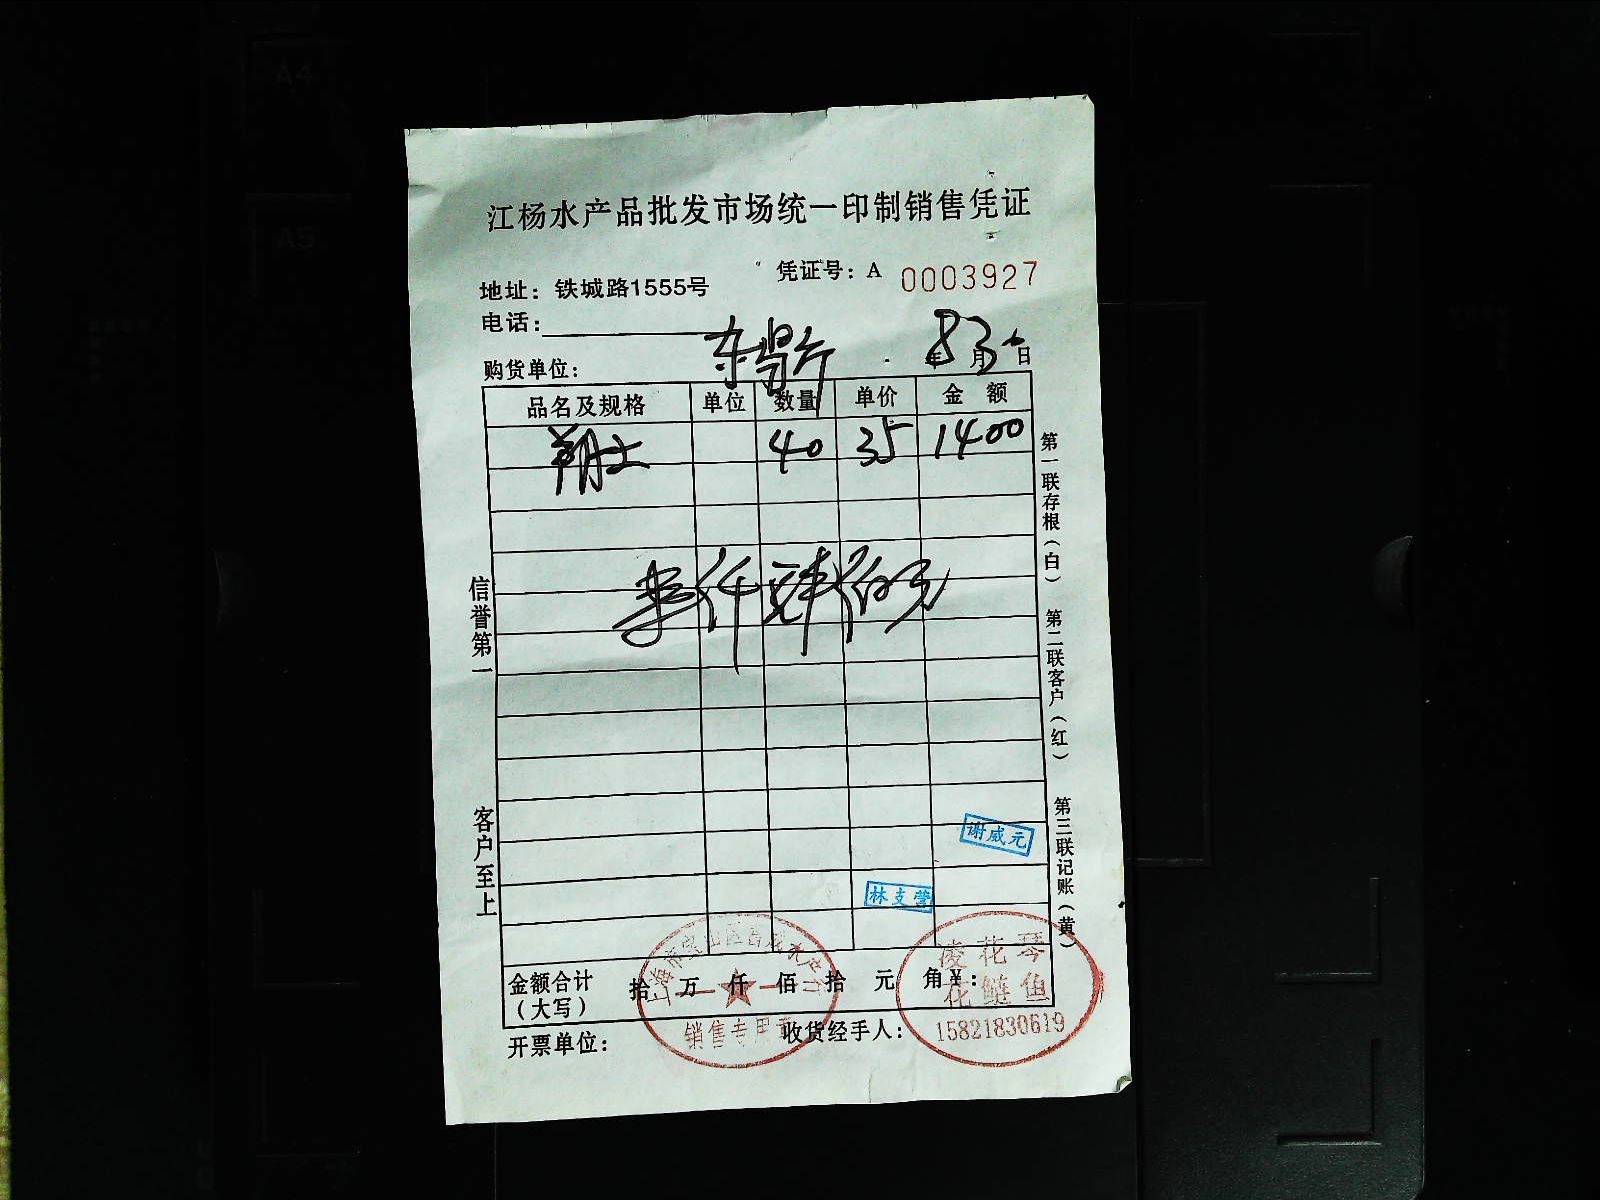 江杨水产品批发市场统一印制销售凭证
凭证号：A 0003927
地址：铁城路1555号
电话：
购货单位：
年 8 月 3 日
品名及规格 单位 数量 单价 金额
40 35 1400
壹仟肆佰元
信誉第一
客户至上
第一联存根（白）
第二联客户（红）
第三联记账（黄）
谢威元
林支营
金额合计（大写） 拾 万 仟 佰 拾 元 角 ￥：
上海市宝山区 水产行
销售专用章
凌花琴
花鲢鱼
15821830619
开票单位：
收货经手人：
A4
A5